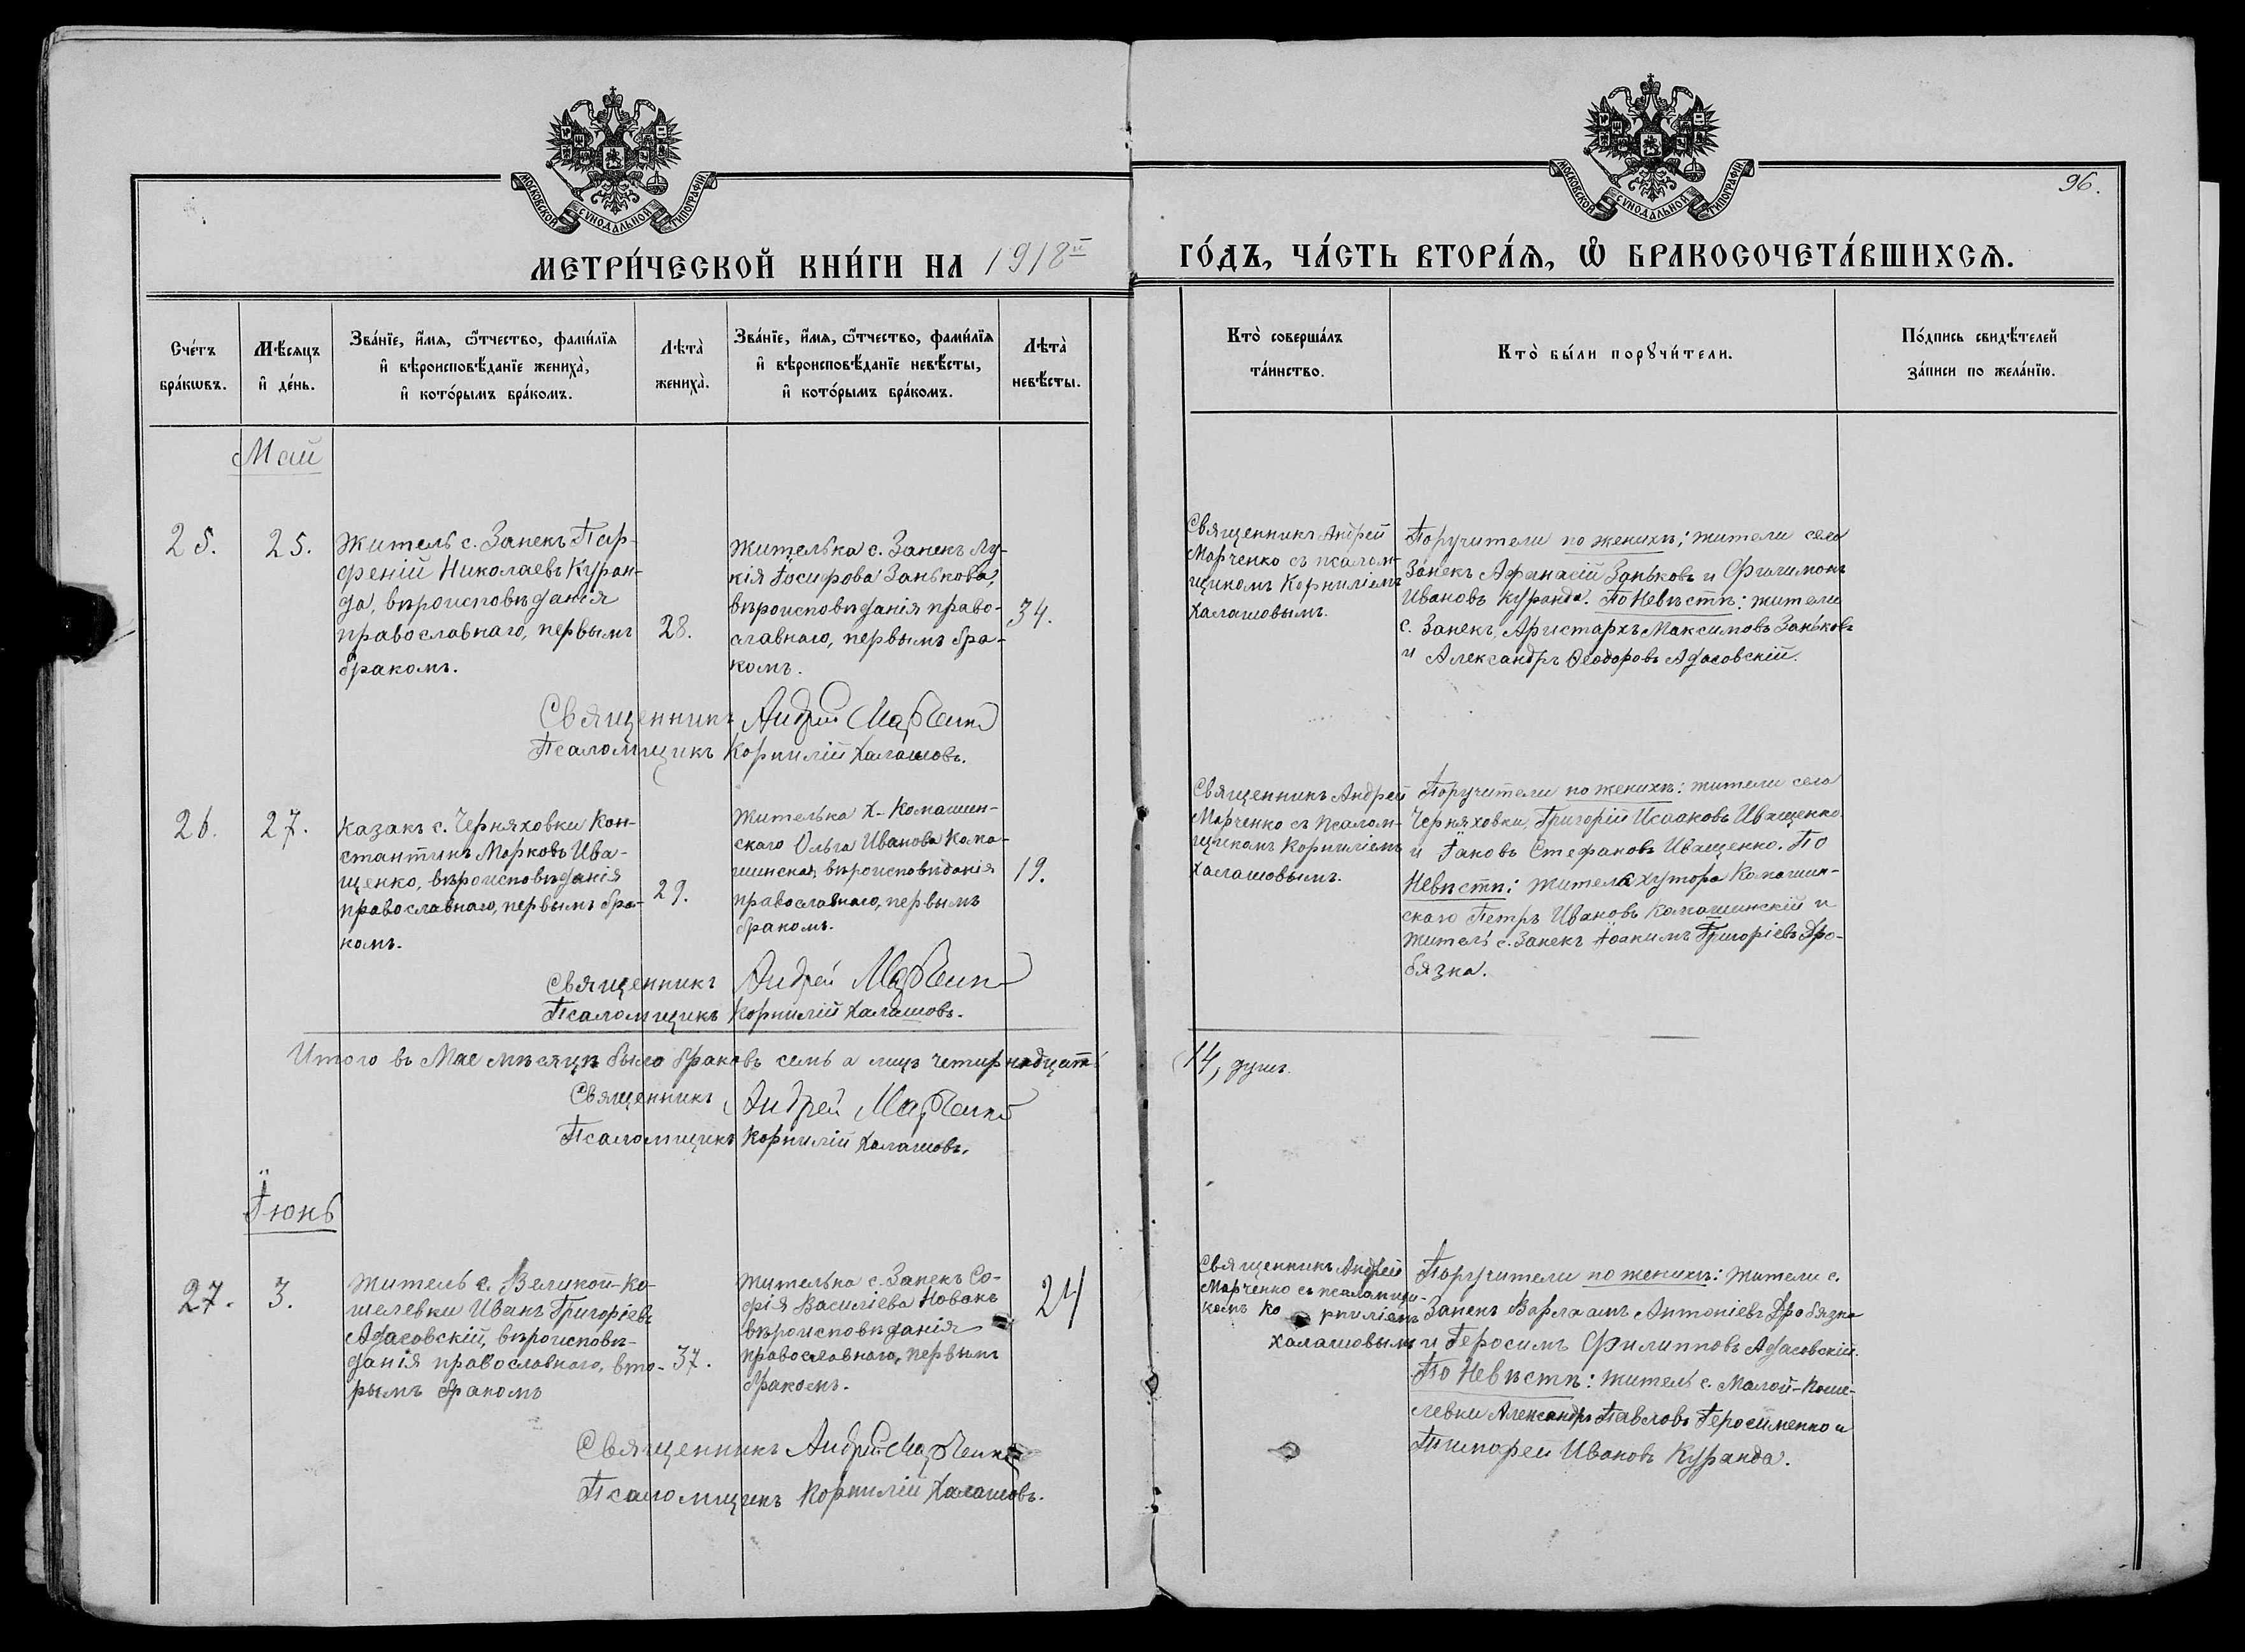 МОСКОВСКОЙ СѴНОДАЛЬНОЙ ТИПОГРАФІИ
МОСКОВСКОЙ СѴНОДАЛЬНОЙ ТИПОГРАФІИ
96.
МЕТРИ́ЧЕСКОЙ КНИ́ГИ НА 1918й ГО́ДЪ, ЧА́СТЬ ВТОРА́Ѧ, Ѽ БРАКОСОЧЕТА́ВШИХСѦ.
Сче́тъ
бра́кѡвъ.
Мѣ́сяцъ
и҆ де́нь.
Зва́нїе, и҆́мѧ, ѻ҆́тчество, фами́лїѧ
и҆ вѣроисповѣ́данїе жениха̀,
и҆ кото́рымъ бра́комъ.
Лѣта̀
жениха̀.
Зва́нїе, и҆́мѧ, ѻ҆́тчество, фами́лїѧ
и҆ вѣроисповѣ́данїе невѣ́сты,
и҆ кото́рымъ бра́комъ.
Лѣта̀
невѣ́сты.
Кто̀ соверша́лъ
та́инство.
Кто̀ бы́ли порꙋчи́тели.
По́дпись свидѣ́телей
за́писи по жела́нїю.
Май
25.
25.
Житель с. Занекъ Пар-
феній Николаевъ Куран-
да, вѣроисповѣданія
православнаго, первымъ
бракомъ.
28.
Жителька с. Занекъ Лу-
кія Іосифова Занькова,
вѣроисповѣданія право-
славнаго, первымъ бра-
комъ.
34.
Священникъ Андрей
Марченко съ псалом-
щикомъ Корниліемъ
Халашовымъ.
Поручители по женихѣ: жители села
Занекъ Афанасій Заньковъ и Филимонъ
Ивановъ Куранда. По Невѣстѣ: жители
с. Занекъ, Аристархъ Максимовъ Заньковъ
и Александръ Ѳеодоровъ Адасовскій.
Священникъ Андрей Марченко
Псаломщикъ Корнилій Халашовъ.
26.
27.
Казакъ с. Черняховки Кон-
стантинъ Марковъ Ива-
щенко, вѣроисповѣданія
православнаго, первымъ бра-
комъ.
29.
Жителька х. Комашин-
скаго Ольга Иванова Кома-
шинская, вѣроисповѣданія
православнаго, первымъ
бракомъ.
19.
Священникъ Андрей
Марченко съ псалом-
щикомъ Корниліемъ
Халашовымъ.
Поручители по женихѣ: жители села
Черняховки, Григорій Исааковъ Иващенко
и Іаковъ Стефановъ Иващенко. По
Невѣстѣ: жители хутора Комашин-
скаго Петръ Ивановъ Комашинскій и
житель с. Занекъ Іоакимъ Григоріевъ Дро-
бязка.
Священникъ Андрей Марченко
Псаломщикъ Корнилій Халашовъ.
Итого въ Мае мѣсяцѣ было браковъ семь а лицъ четирнадцать 14, душъ.
Священникъ Андрей Марченко
Псаломщикъ Корнилій Халашовъ.
Іюнь
27.
3.
Житель с. Великой-Ко-
шелевки Иванъ Григоріевъ
Адасовскій, вѣроисповѣ-
данія православнаго, вто-
рымъ бракомъ
37.
Жителька с. Занекъ Со-
фія Василіева Новакъ
вѣроисповѣданія
православнаго, первымъ
бракомъ.
24
Священникъ Андрей
Марченко съ псаломщи-
комъ Корниліемъ
Халашовымъ
Поручители по женихѣ: жители с.
Занекъ Варлаамъ Антоніевъ Дробязка
и Геросимъ Филипповъ Адасовскій.
По Невѣстѣ: житель с. Малой-Коше-
левки Александръ Павловъ Геросименко и
Тимофей Ивановъ Куранда.
Священникъ Андрей Марченко
Псаломщикъ Корнилій Халашовъ.